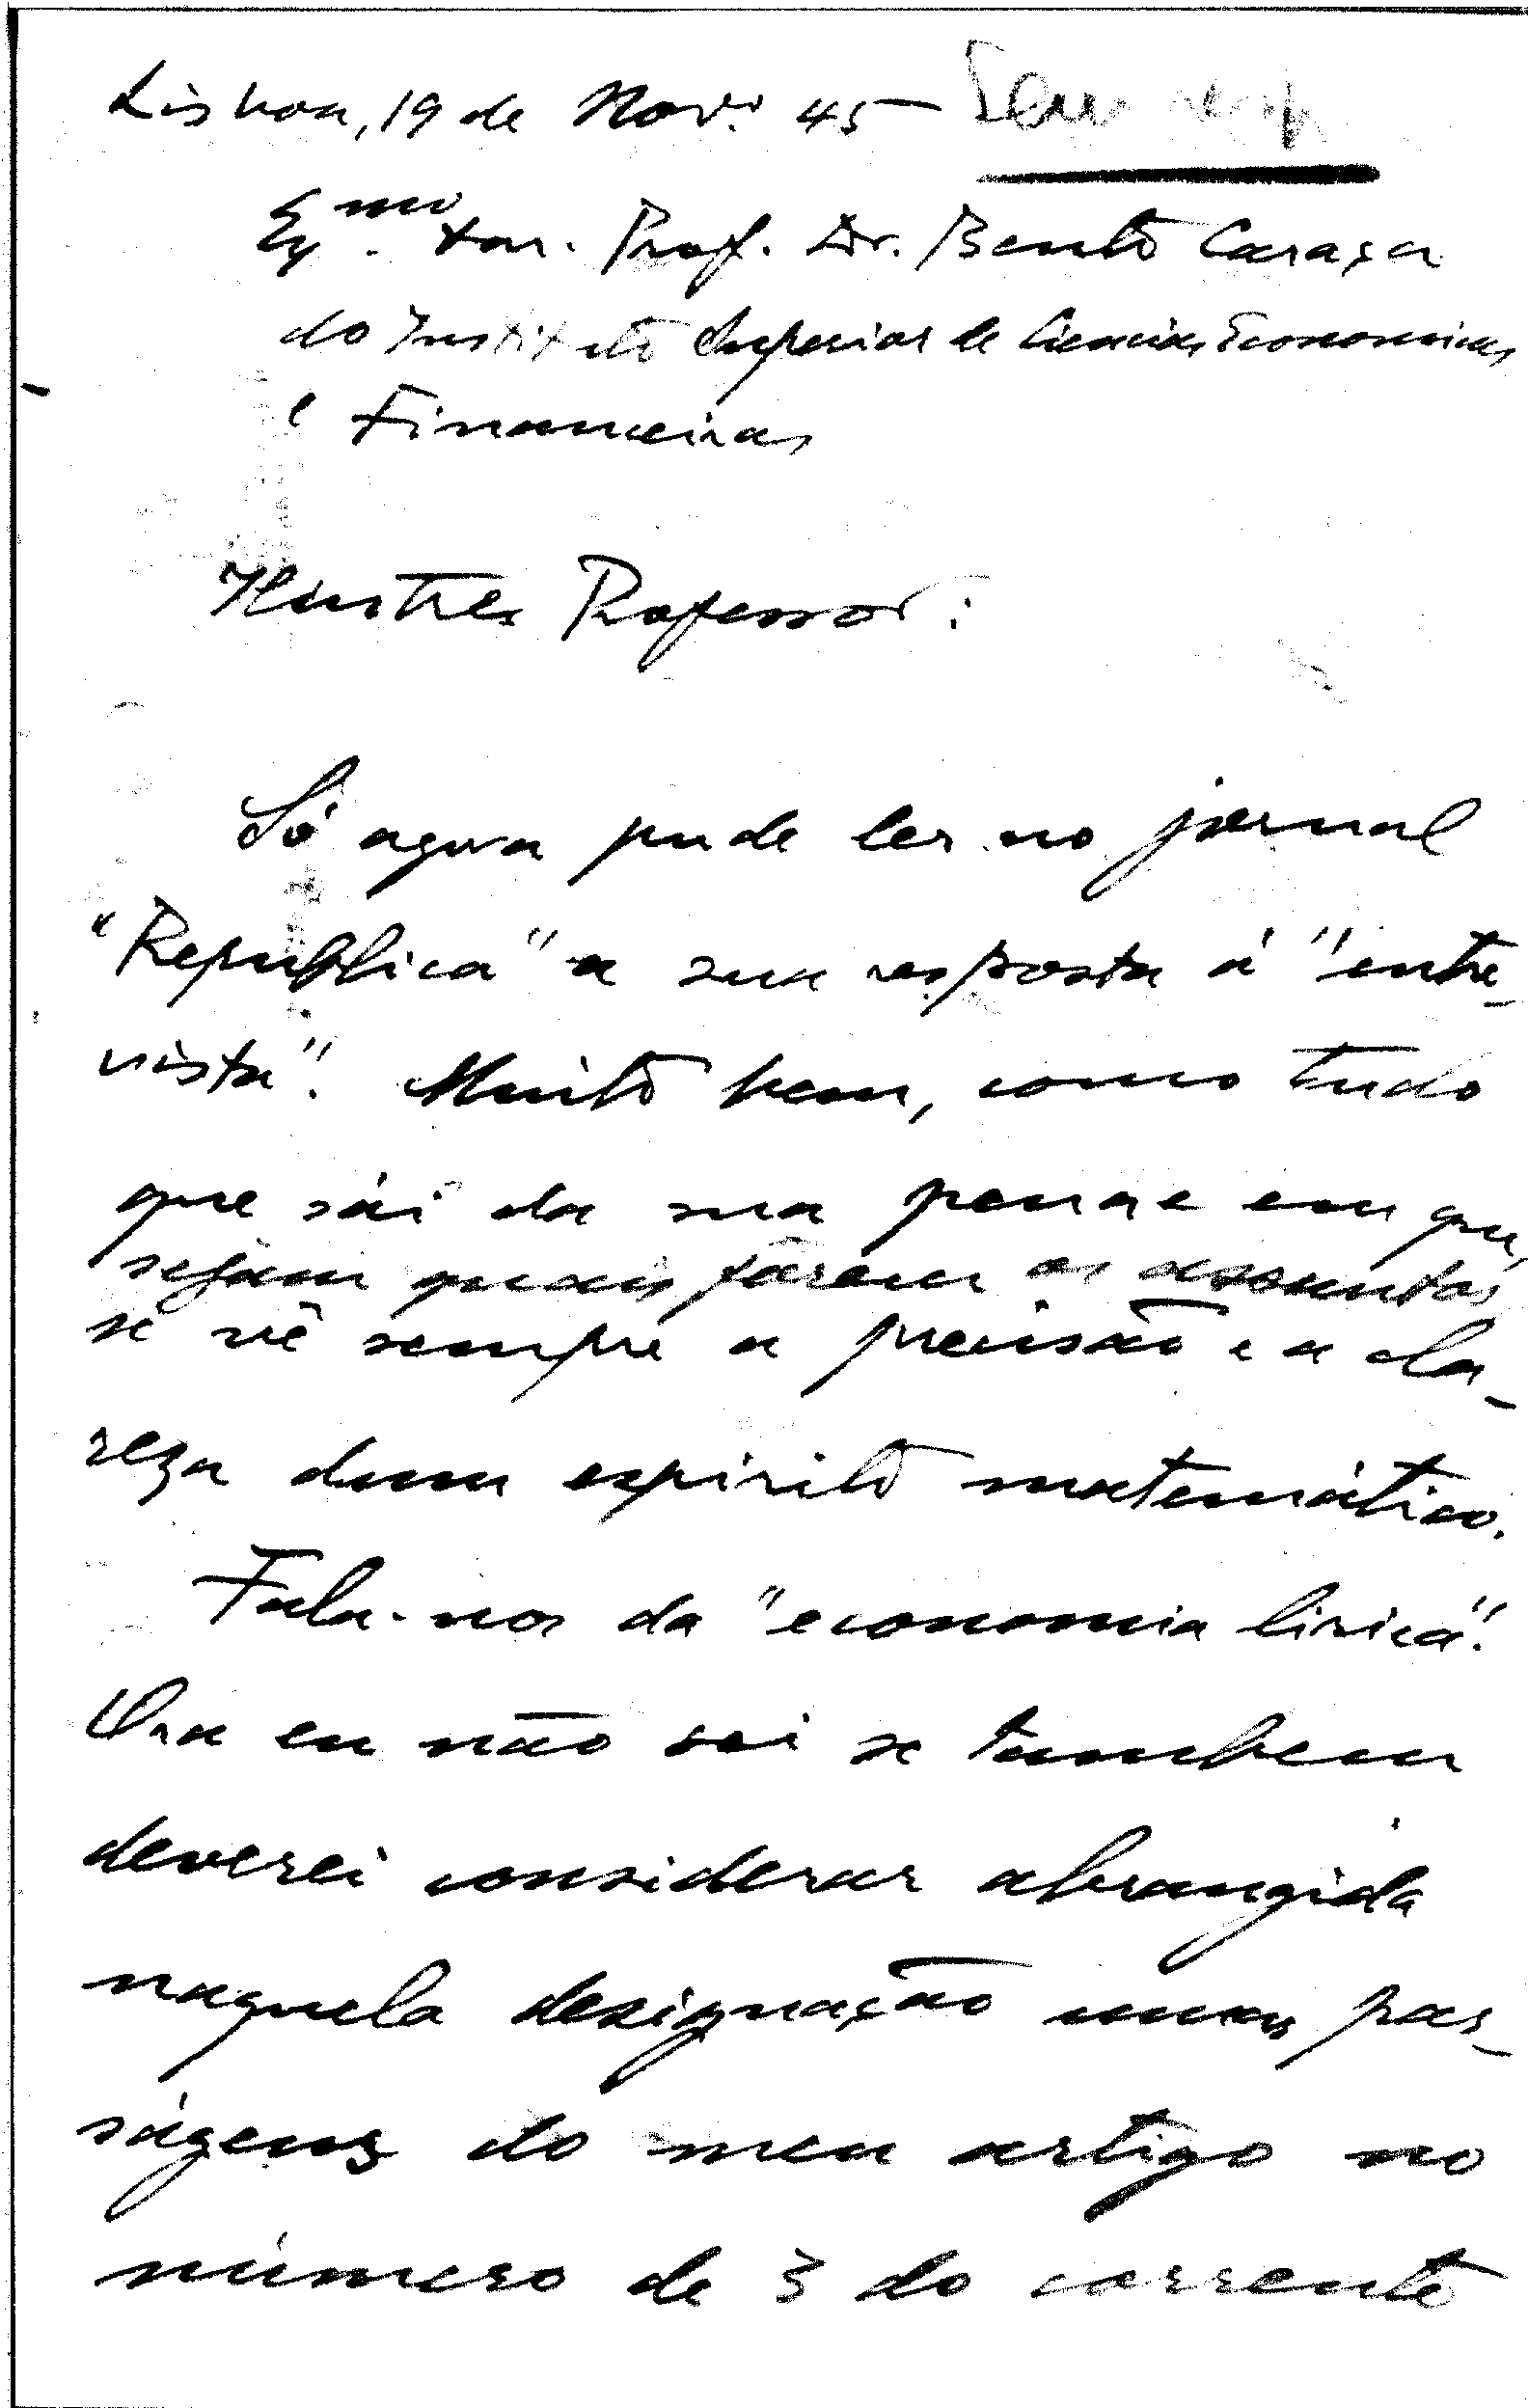 Lisboa, 19 de Nov.º 45 Sem resp
Ex.mo Snr. Prof. Dr. Bento Caraça
do Instituto Superior de Ciencias Economicas
e Financeiras
Ilustre Professor:
Só agora pude ler no jornal
"Republica" a sua resposta á "entre-
vista". Muito bem, como tudo
que sái da sua pena e em que,
sejam quais fôrem os assuntos,
se vê sempre a precisão e a cla-
reza dum espirito matemático.
Fala-nos da "economia lirica".
Ora eu não sei se tambem
deverei considerar abrangida
naquela designação umas pas-
ságens do meu artigo no
número de 3 do corrente